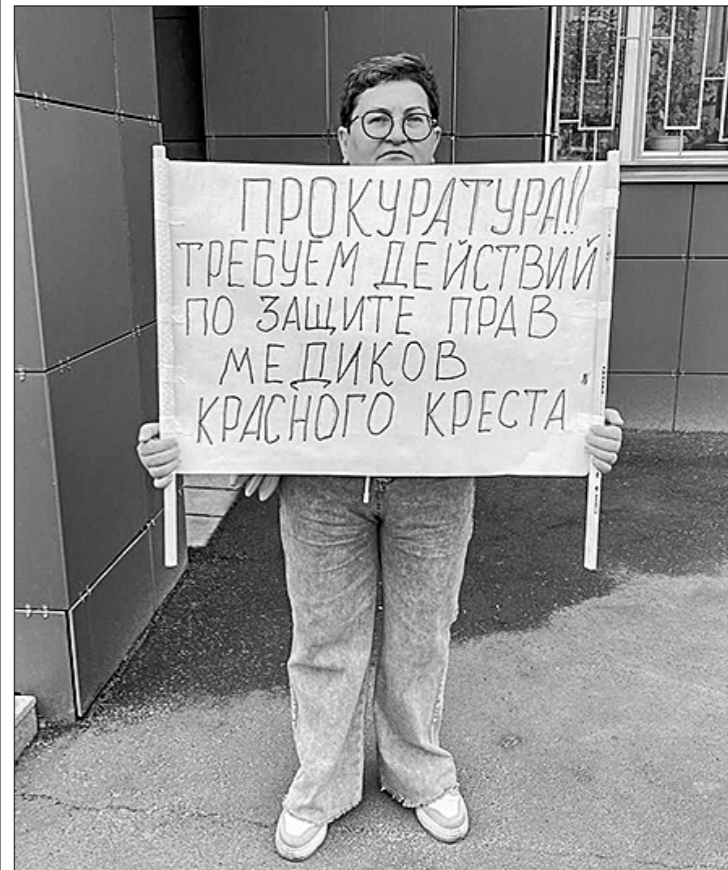 ПРОКУРАТУРА!!
ТРЕБУЕМ ДЕЙСТВИЙ
ПО ЗАЩИТЕ ПРАВ
МЕДИКОВ
КРАСНОГО КРЕСТА